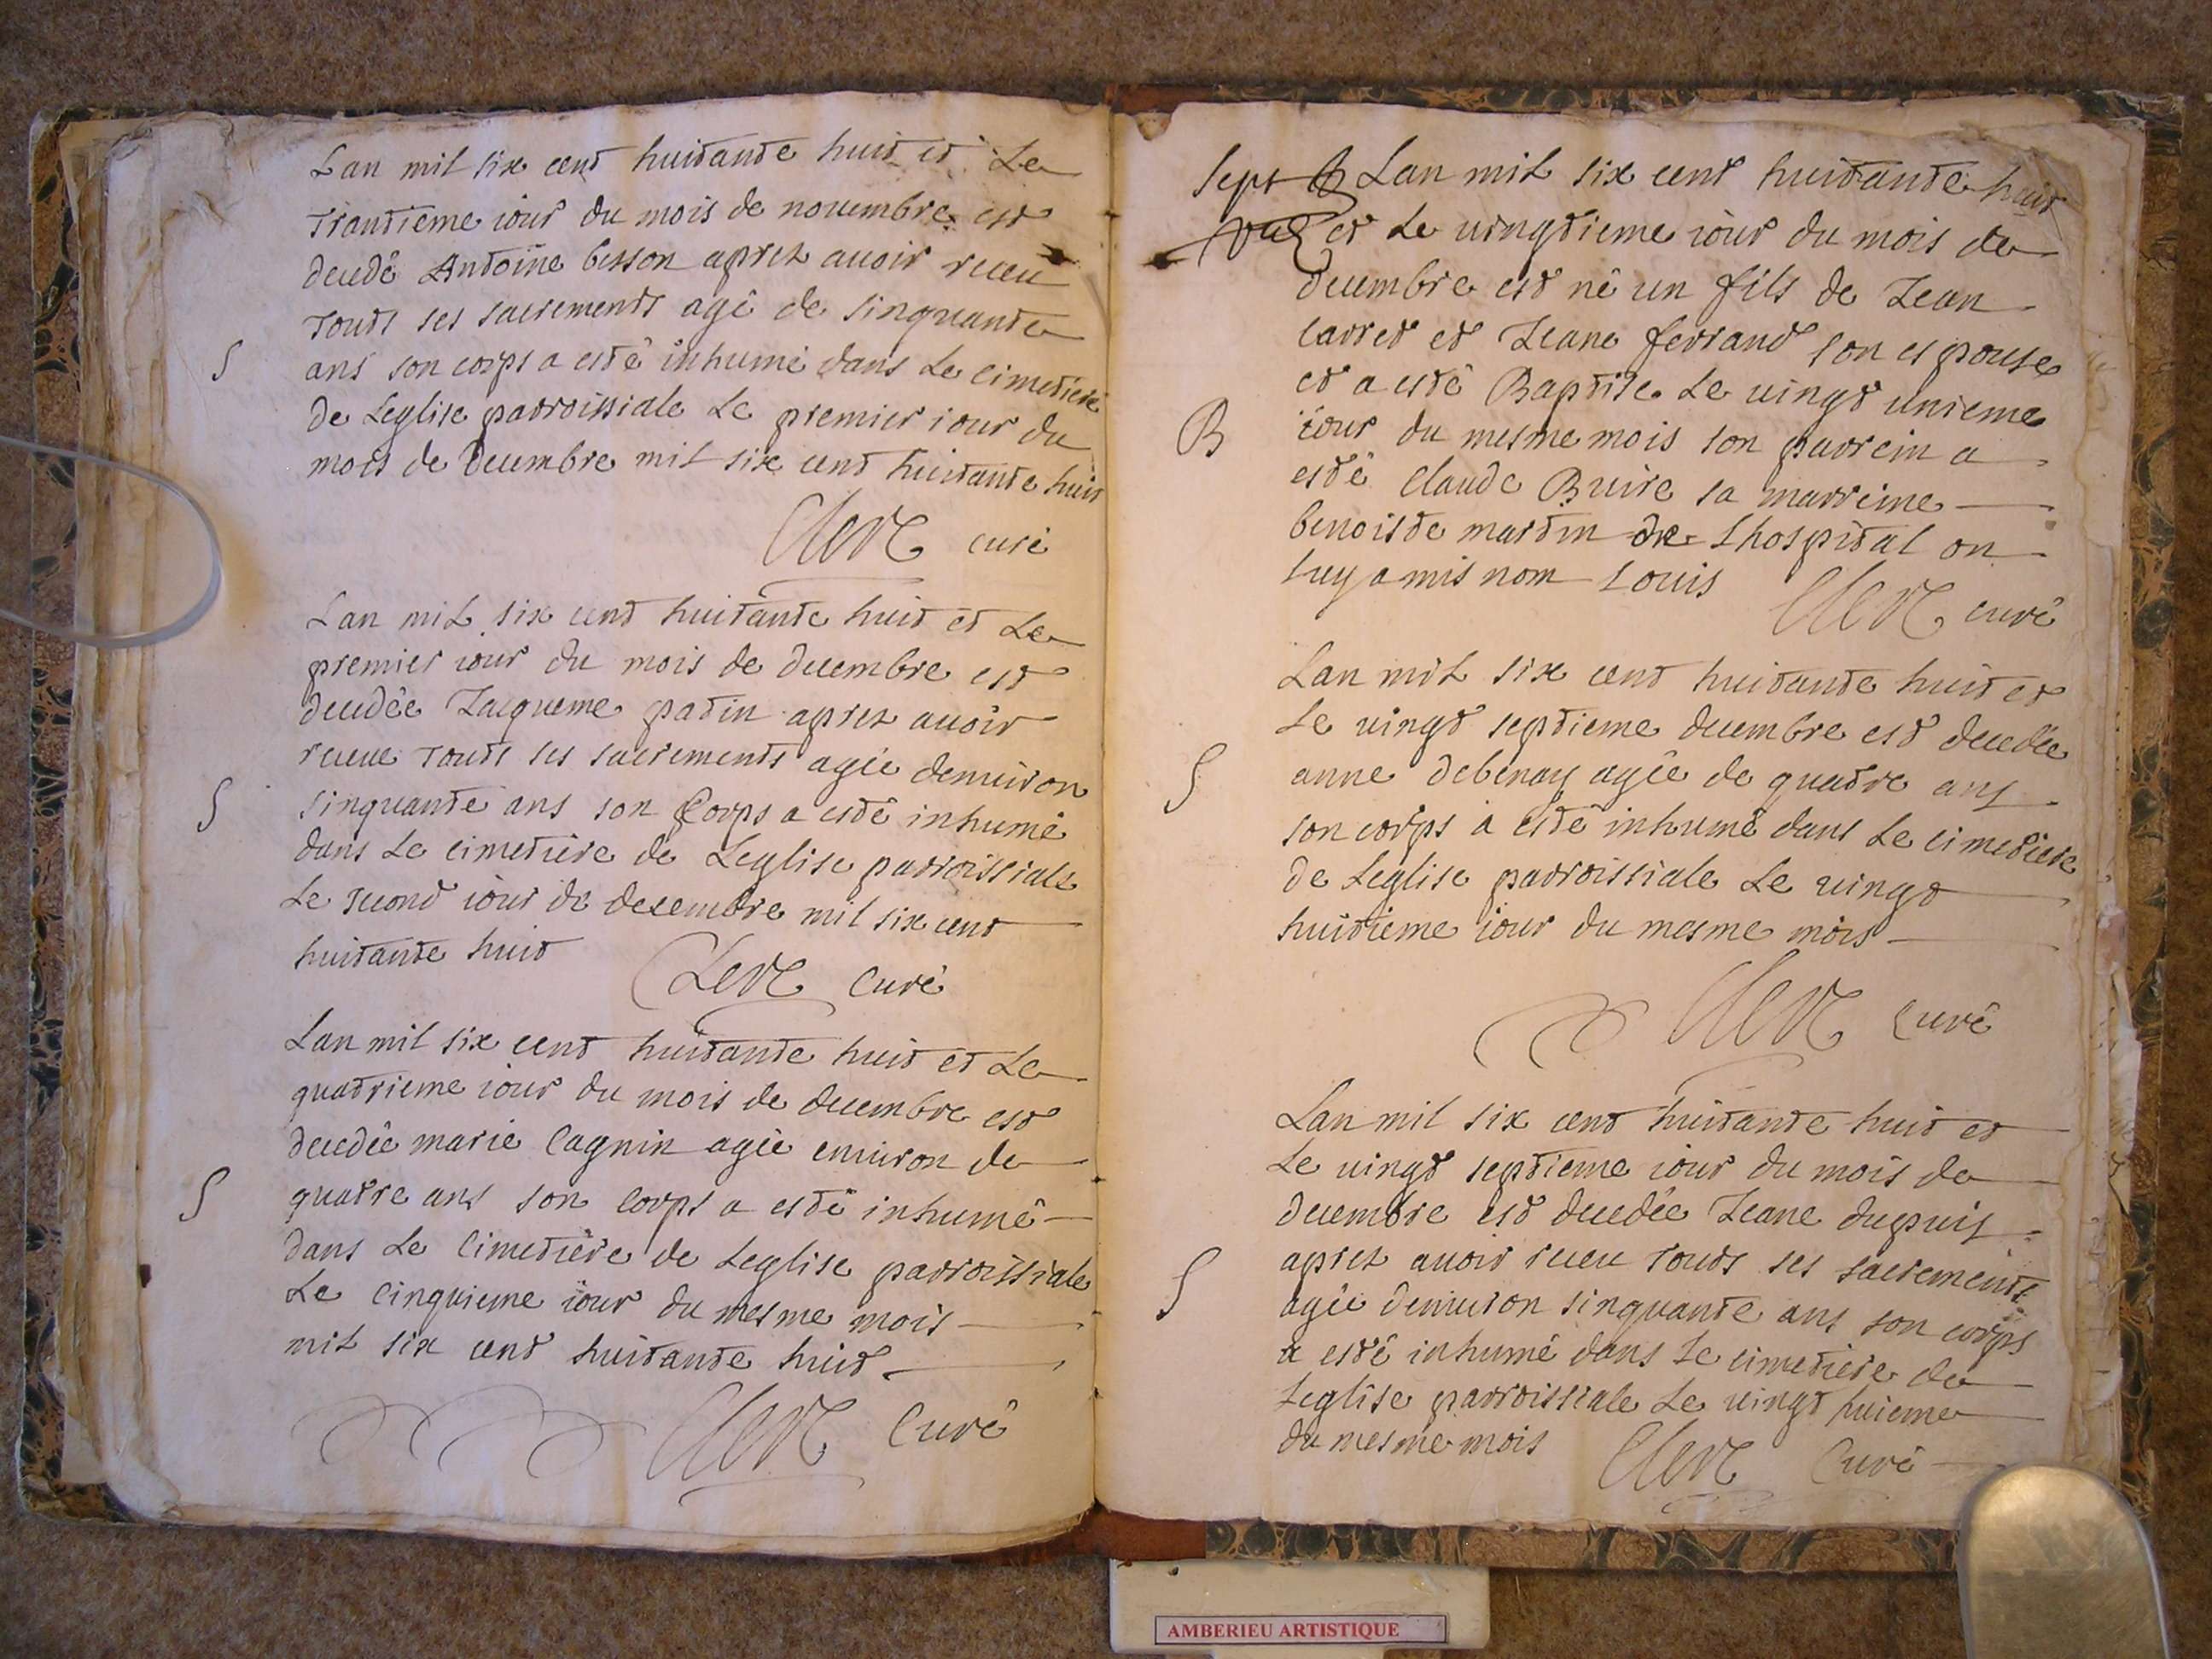 Lan mil six cent huitante huit et Le
trantieme iour du mois de nouembre est
decedé Antoine besson aprez auoir receu
touts ses sacrements agé de sinquante
S
ans son corps a esté inhumé dans Le cimetiere
de Leglise parroissiale Le premier iour du
mois de Decembre mil six cent huitante huit
Clerc curé
Lan mil six cent huitante huit et Le
premier iour du mois de decembre est
decedée Jacqueme patin aprez auoir
receue touts ses sacrements agée denuiron
S
sinquante ans son Corps a esté inhumé
dans Le cimetiere de Leglise parroissiale
Le second iour de decembre mil six cent
huitante huit Clerc Curé
Lan mil six cent huitante huit et Le
quatrieme iour du mois de decembre est
decedée marie Cagnin agée enuiron de
S
quatre ans son Corps a esté inhumé
dans Le Cimetiere de Leglise parroissiale
Le Cinquieme iour du mesme mois
mil six cent huitante huit
Clerc Curé
Sept Lan mil six cent huitante huit
et Le uingtieme iour du mois de
decembre est né un fils de Jean
Carret et Jeane ferrand son espouse
et a esté Baptise Le uingt unieme
B
iour du mesme mois son parrein a
esté Claude Buire sa marreine
benoiste martin de Lhospital on
Luy a mis nom Louis Clerc curé
Lan mil six cent huitante huit et
Le uingt septieme decembre est decedée
S
anne debenay agée de quatre ans
son corps a esté inhumé dans Le cimetiere
de Leglise parroissiale Le uingt
huitieme iour du mesme mois
Clerc Curé
Lan mil six cent huitante huit et
Le uingt septieme iour du mois de
decembre est decedée Jeane dupuis
aprez auoir receu touts ses sacrements
S
agée denuiron sinquante ans son corps
a esté inhumé dans Le cimetiere de
Leglise parroissiale Le uingt huieme
du mesme mois Clerc Curé
AMBERIEU ARTISTIQUE